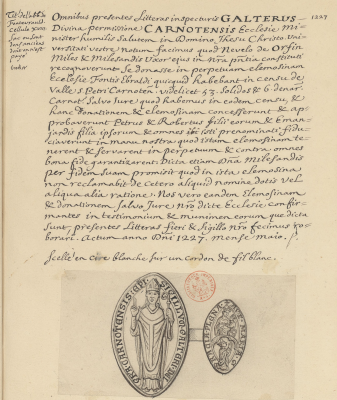 Omnibus presentes Litteras inspecturis GALTERUS
Divina permissione CARNOTENSIS Ecclesie Mi-
nister humilis Salutem in Domino Jhesu Christo Univer-
sitati vestre notum facimus quod Nevelo de Orfin
Miles & Milesandis Uxor ejus in nra pntia constituti
recognoverunt se donasse in perpetuam elemosinam
Ecclesie Fontis Ebraldi quidquid habebant in censu de
Valle S. Petri Carnoten. videlicet 53. Solidos & 6 denar.
Carnot. Salvo Jure quod habemus in eodem censu, &
hanc donationem & elemosinam concesserunt & ap-
probaverunt Petrus & Robertus filii eorum & Eman-
jardis filia ipsorum & omnes isti prenominati fidu-
ciaverunt in manu nostra quod istam elemosinam te-
nerent & servarent in perpetuum & contra omnes
bona fide garantizarent. Dicta etiam Dna Milesandis
per fidem suam promisit quod in ista elemosina
non reclamabit de cetero aliquid nomine dotis vel
aliqua alia ratione. Nos vero eandem elemosinam
& donationem salvo Jure nro dicte Ecclesie confir-
mantes in testimonium & munimen eorum que dicta
sunt, presentes Litteras fieri & Sigillo nro fecimus ro-
borari. Actum anno Dni 1227. mense maio.
Scellé en cire blanche sur un cordon de fil blanc.
1227